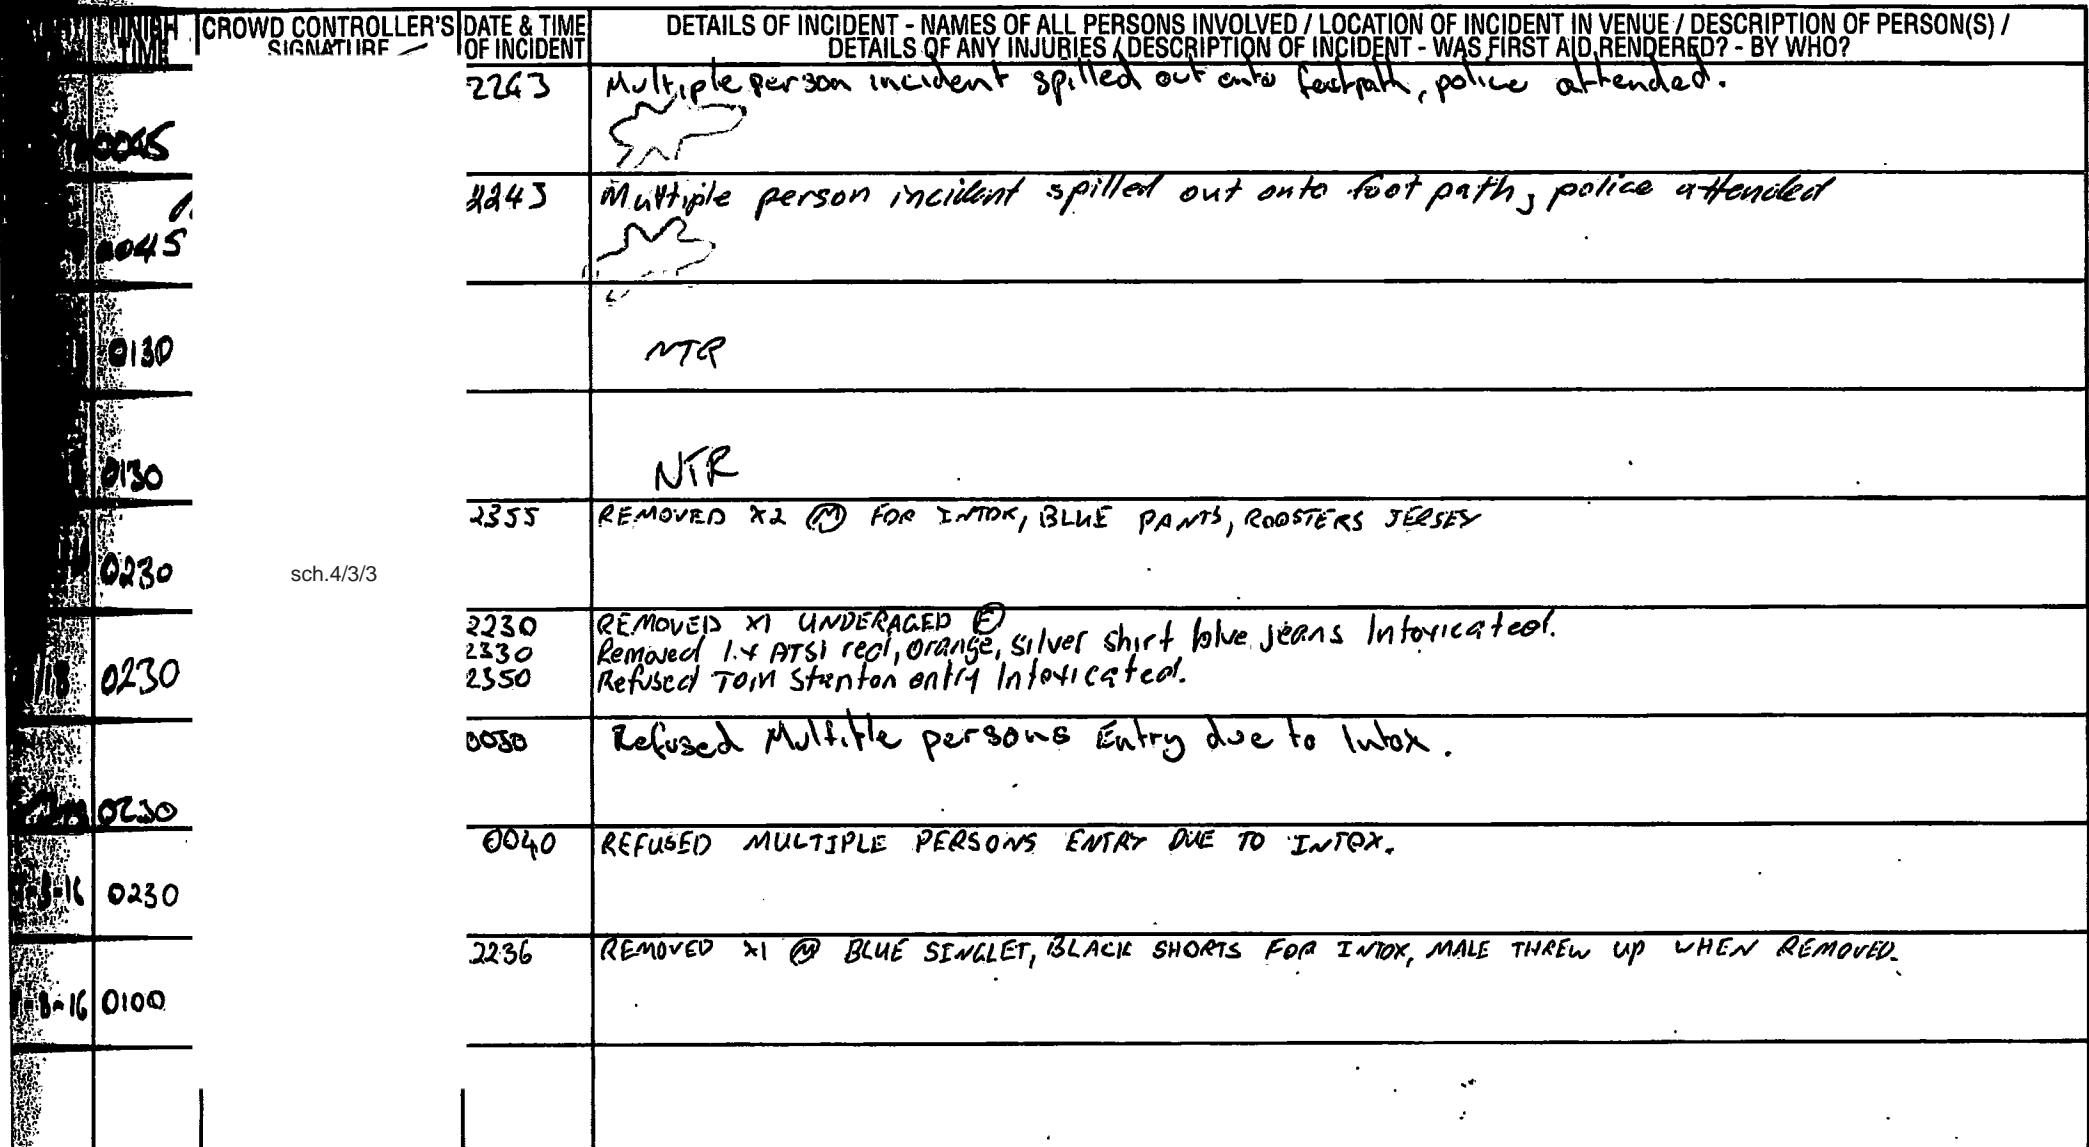 FINISH TIME
CROWD CONTROLLER'S SIGNATURE
DATE & TIME OF INCIDENT
DETAILS OF INCIDENT - NAMES OF ALL PERSONS INVOLVED / LOCATION OF INCIDENT IN VENUE / DESCRIPTION OF PERSON(S) /
DETAILS OF ANY INJURIES / DESCRIPTION OF INCIDENT - WAS FIRST AID RENDERED? - BY WHO?
2243 Multiple person incident spilled out onto footpath, police attended.
0045
2243 Multiple person incident spilled out onto foot path, police attended
0045
0130 NTR
0130 NTR
2355 REMOVED X2 M FOR INTOX, BLUE PANTS, ROOSTERS JERSEY
0230
sch.4/3/3
2230 REMOVED X1 UNDERAGED F
2330 Removed 1.x ATSI red, orange, silver shirt blue jeans Intoxicated.
0230
2350 Refused Tom Stanton entry Intoxicated.
0030 Refused Multiple persons Entry due to Intox.
0230
0040 REFUSED MULTIPLE PERSONS ENTRY DUE TO INTOX.
0230
2236 REMOVED X1 M BLUE SINGLET, BLACK SHORTS FOR INTOX, MALE THREW UP WHEN REMOVED.
0100